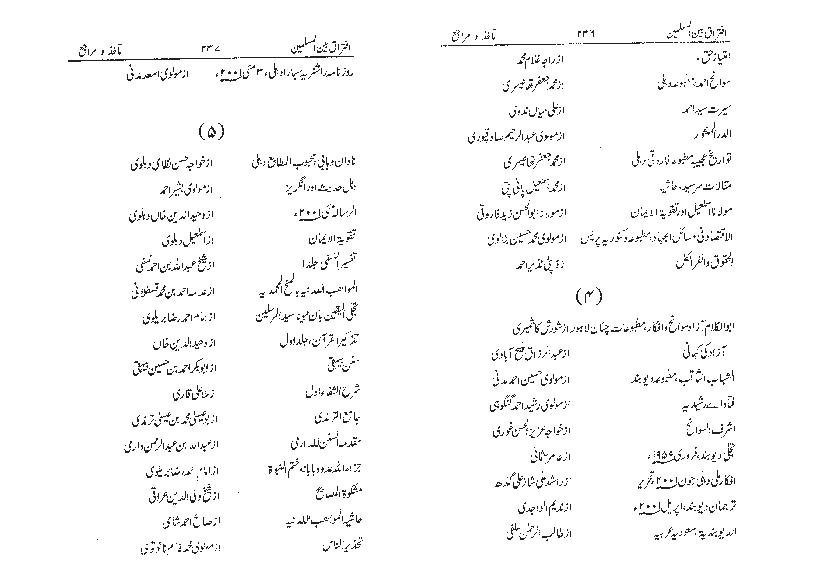 افتراق بین المسلمین ۲۳۶ مآخذ و مراجع
امتیاز حق، از راجہ غلام محمد
سوانح احمد، مطبوعہ دہلی از محمد جعفر تھانیسری
سیرت سید احمد از علی میاں ندوی
الدر المنثور از مولوی عبدالرحیم صادقپوری
تواریخ عجیبہ مطبوعہ فاروقی دہلی از محمد جعفر تھانیسری
مقالات سرسید، حاشیہ از محمد اسمٰعیل پانی پتی
مولانا اسمٰعیل اور تقویۃ الایمان از مولانا ابوالحسن زید فاروقی
الاقتصاد فی مسائل الجہاد، مطبوعہ وکٹوریہ پریس از مولوی محمد حسین بٹالوی
الحقوق والفرائض از ڈپٹی نذیر احمد
(۴)
ابوالکلام آزاد سوانح و افکار، مطبوعات چٹان لاہور از شورش کاشمیری
آزاد کی کہانی از عبدالرزاق ملیح آبادی
الشہاب الثاقب، مطبوعہ دیوبند از مولوی حسین احمد مدنی
فتاوائے رشیدیہ از مولوی رشید احمد گنگوہی
اشرف السوانح از خواجہ عزیز الحسن غوری
تجلی دیوبند، فروری ۱۹۵۹ء از عامر عثمانی
افکار ملی دہلی جون ۲۰۰۱ء تحریر از راشد علی شاز علی گڈھ
ترجمان دیوبند، اپریل ۲۰۰۱ء از ندیم الواجدی
الدیوبندیہ، سعودیہ عربیہ از طالب الرحمٰن سلفی
افتراق بین المسلمین ۲۳۷ مآخذ و مراجع
روزنامہ راشٹریہ سہارا دہلی، ۳ مئی ۲۰۰۱ء از مولوی اسعد مدنی
(۵)
نادان وہابی، محبوب المطابع دہلی از خواجہ حسن نظامی دہلوی
اہل حدیث اور انگریز از مولوی بشیر احمد
الرسالہ مئی ۲۰۰۱ء از وحید الدین خاں دہلوی
تقویۃ الایمان از اسمٰعیل دہلوی
تفسیر النسفی جلد ۱ از شیخ عبداللہ بن احمد نسفی
المواہب اللدنیہ بالمنح المحمدیہ از علامہ احمد بن محمد قسطلانی
تجلی الیقین بان نبینا سید المرسلین از امام احمد رضا بریلوی
تذکیر القرآن، جلد اول از وحید الدین خاں
سنن بیہقی از ابوبکر احمد بن حسین بیہقی
شرح الشفاء اول از ملا علی قاری
جامع الترمذی از ابوعیسیٰ محمد بن عیسیٰ ترمذی
مقدمہ السنن للدارمی از عبداللہ بن عبدالرحمٰن دارمی
جزاء اللہ عدوہ بابائہ ختم النبوۃ از امام احمد رضا بریلوی
مشکوٰۃ المصابیح از شیخ ولی الدین عراقی
حاشیہ المواہب اللدنیہ از صالح احمد شامی
تحذیر الناس از مولوی محمد قاسم نانوتوی